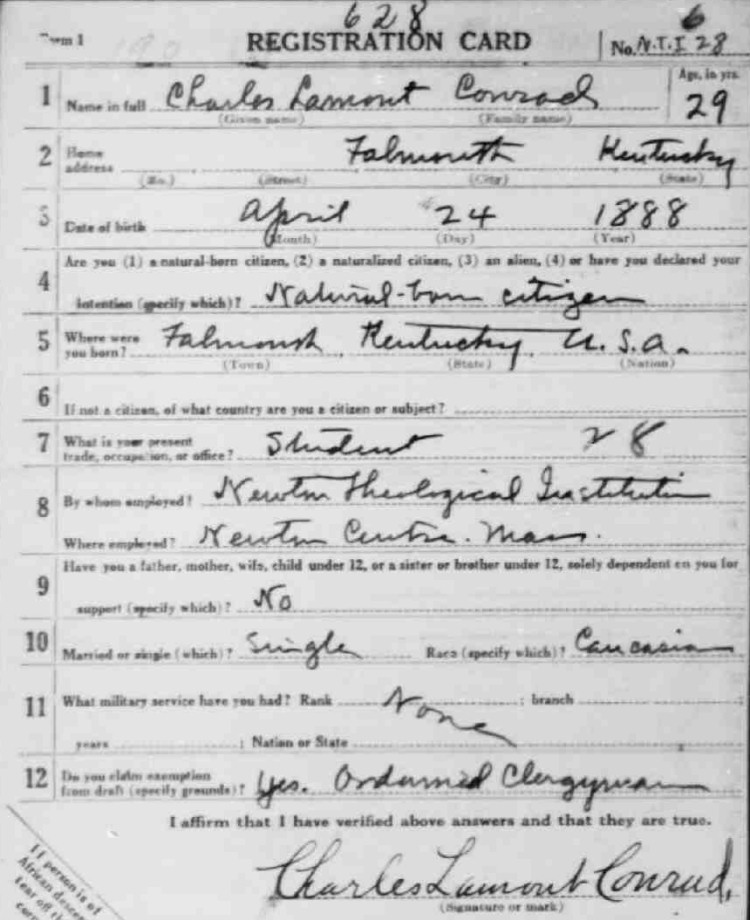 628 6
Form 1 REGISTRATION CARD No. N.T.I 28
1 Name in full Charles Lamont Conrad Age, in yrs. 29
(Given name) (Family name)
2 Home address Falmouth Kentucky
(No.) (Street) (City) (State)
3 Date of birth April 24 1888
(Month) (Day) (Year)
4 Are you (1) a natural-born citizen, (2) a naturalized citizen, (3) an alien, (4) or have you declared your
intention (specify which)? Natural-born citizen
5 Where were you born? Falmouth Kentucky, U.S.A.
(Town) (State) (Nation)
6 If not a citizen, of what country are you a citizen or subject?
7 What is your present trade, occupation, or office? Student 28
8 By whom employed? Newton Theological Institution
Where employed? Newton Centre. Mass.
9 Have you a father, mother, wife, child under 12, or a sister or brother under 12, solely dependent on you for
support (specify which)? No
10 Married or single (which)? Single Race (specify which)? Caucasian
11 What military service have you had? Rank None ; branch
years ; Nation or State
12 Do you claim exemption from draft (specify grounds)? Yes. Ordained Clergyman
I affirm that I have verified above answers and that they are true.
Charles Lamont Conrad,
(Signature or mark)
If person is of
African descent
tear off